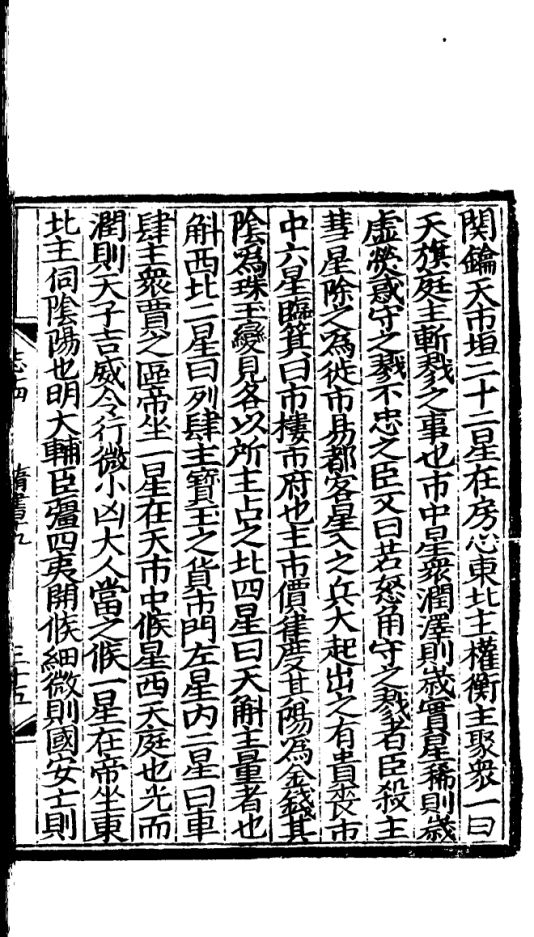 関鑰天市垣二十二星在房心東北主權衡主聚衆一曰
天旗庭主斬戮之事也市中星衆潤澤則歳實星稀則歳
虚熒惑守之戮不忠之臣又曰若怒角守之戮者臣殺主
彗星除之為徙市易都客星入之兵大起出之有貴喪市
中六星臨箕曰市樓市府也主市價律度其陽為金錢其
隂為珠玉變見各以所主占之北四星曰天斛主量者也
斛西北二星曰列肆主寶玉之貨市門左星内二星曰車
肆主衆賈之區帝坐一星在天市中候星西天庭也光而
潤則天子吉威令行微小凶大人當之候一星在帝坐東
北主伺隂陽也明大輔臣彊四夷開候細微則國安士則
志十四 隋書十九 三十五